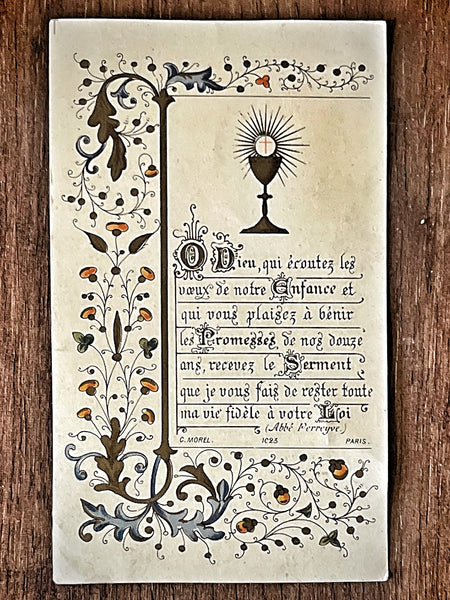 O Dieu, qui écoutez les
vœux de notre Enfance et
qui vous plaisez à bénir
les Promesses de nos douze
ans, recevez le Serment
que je vous fais de rester toute
ma vie fidèle à votre Loi
(Abbé Perreyve)
C. MOREL. 1025 PARIS.